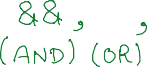 &&, ,
(AND) (OR)